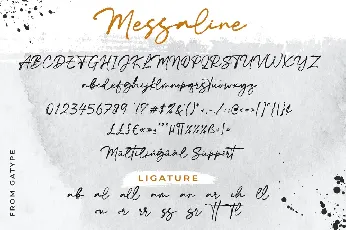 Messaline
ABCDEFGHIJKLMNOPQRSTUVWXYZ
abcdefghijklmnopqrstuvwxyz
0123456789
Multilingual Support
LIGATURE
ab al all am an ar ib ll
on or rr ss sr tt tl
FROM GATYPE